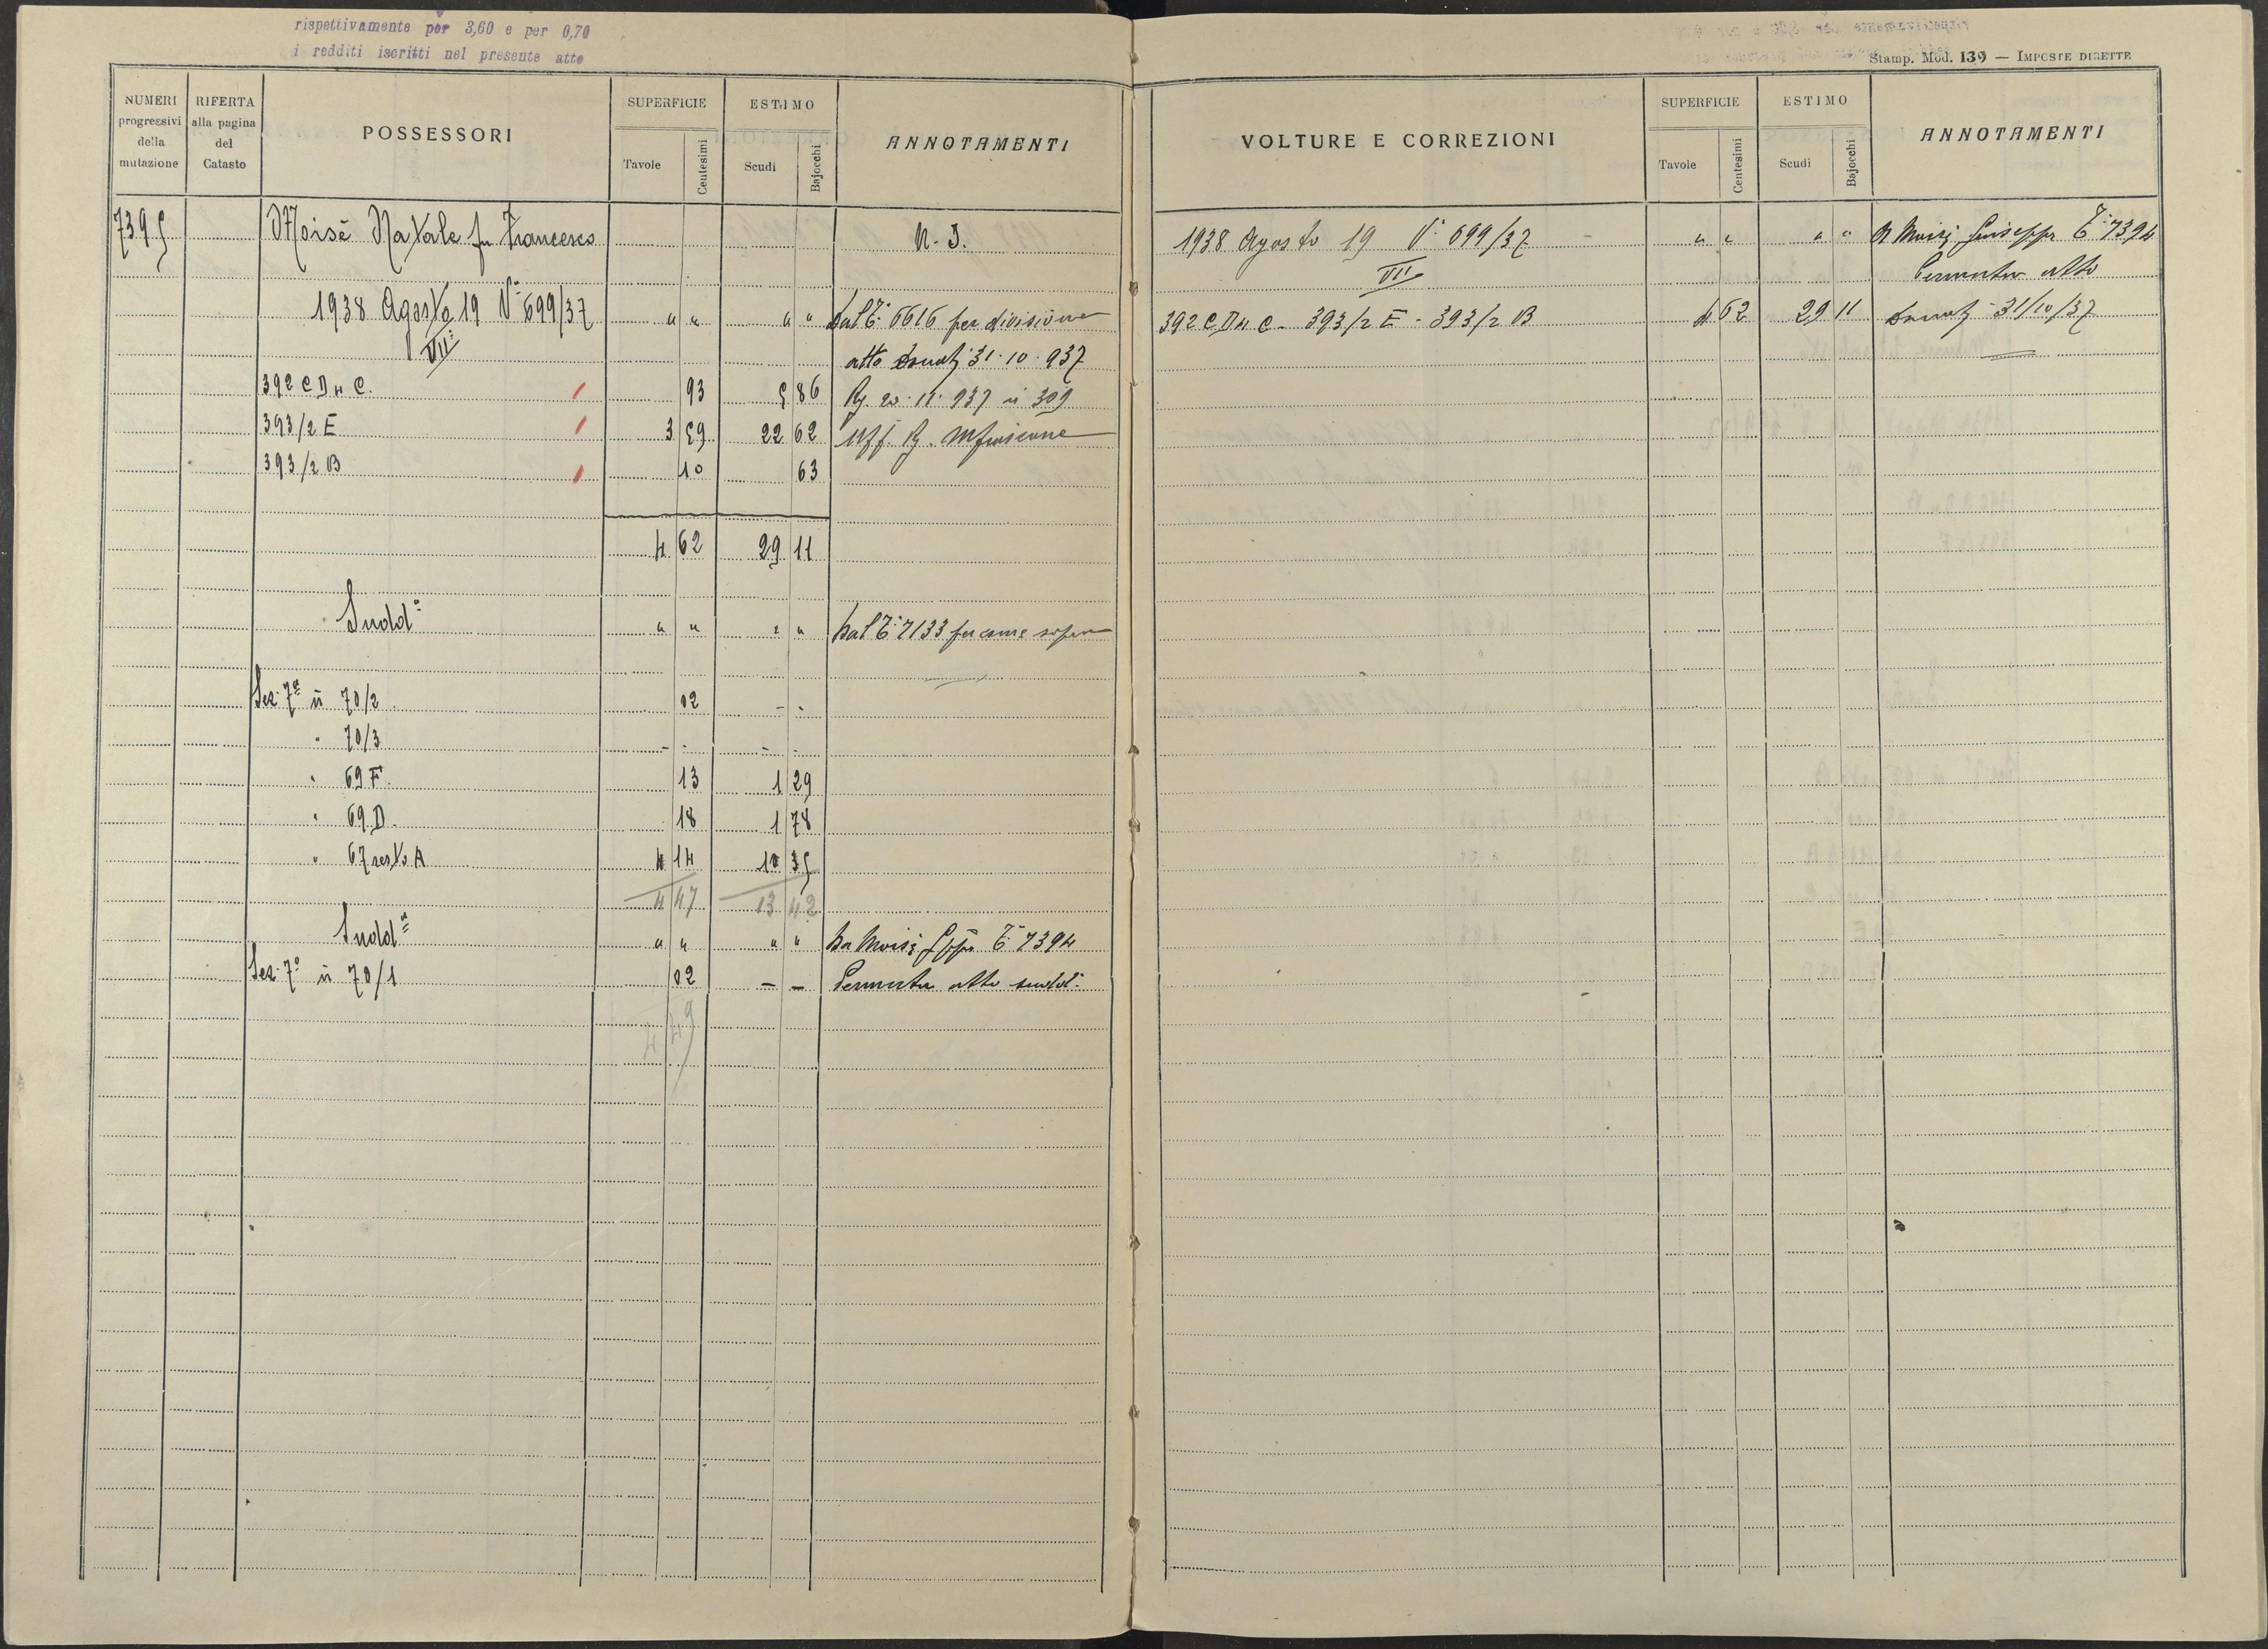 rispettivamente per 3,60 e per 0,70
i redditi iscritti nel presente atto
NUMERI progressivi della mutazione
RIFERTA alla pagina del Catasto
POSSESSORI
SUPERFICIE
Tavole
Centesimi
ESTIMO
Scudi
Bajocchi
ANNOTAMENTI
7395 Moisè Natale fu Francesco N. I.
1938 Agosto 19 V° 699/37 " " " " Dal T° 6616 per divisione
VII° atto 31.10.937
392 C D 4 C. 93 5 86 Rg. 20.11.937 n° 309
393/2 E 3 59 22 62 Uff. Rg.
393/2 B 10 63
4 62 29 11
Sudd° " " " " Dal T° 7133 per come sopra
Sez. 7ª n° 70/2 02 - -
" 70/3 - - - -
" 69 F. 13 1 29
" 69 D. 18 1 78
" 67 resto A 4 14 10 35
4 47 13 42
Sudd° " " " " Da Moisè Gppe T° 7394
Sez. 7ª n° 70/1 02 - - Permuta atto sudd°
4 49
Stamp. Mod. 139 — IMPOSTE DIRETTE
VOLTURE E CORREZIONI
SUPERFICIE
Tavole
Centesimi
ESTIMO
Scudi
Bajocchi
ANNOTAMENTI
1938 Agosto 19 V° 699/37 " " " " A Moisè Giuseppe T° 7394
VII Permuta atto
392 C D 4 C - 393/2 E - 393/2 B 4 62 29 11 31/10/37